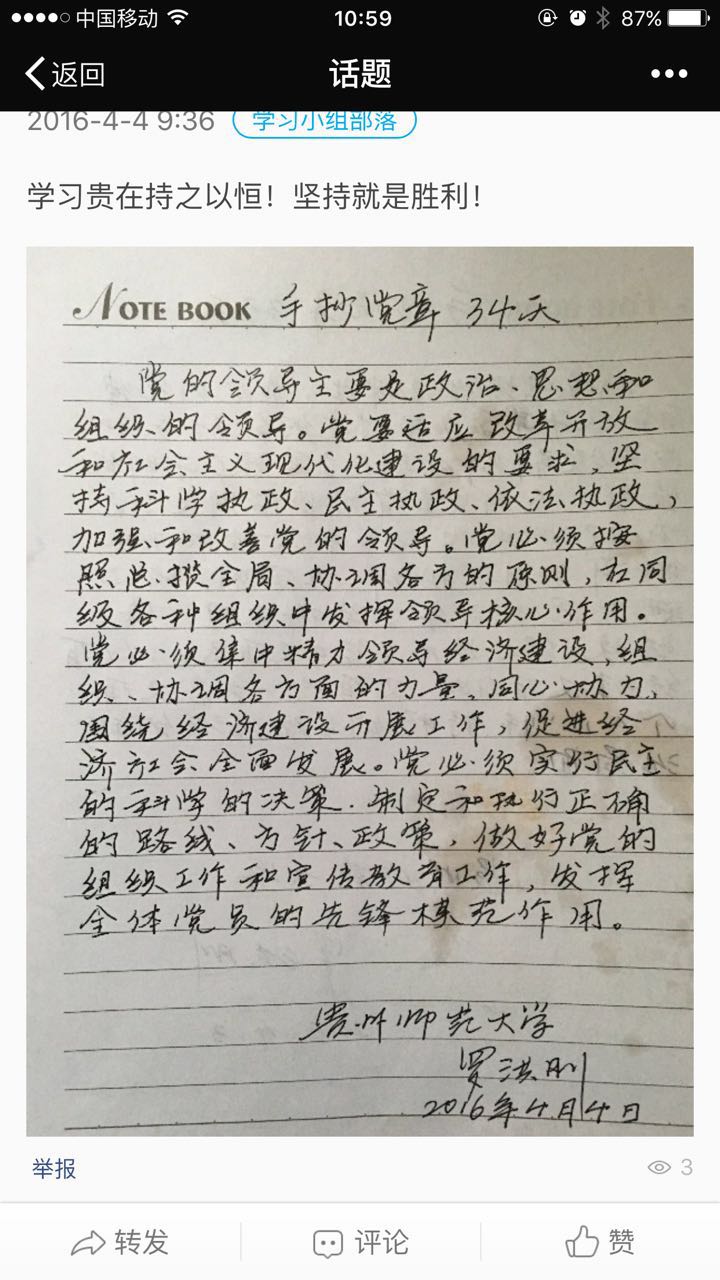 中国移动 10:59 87%
返回 话题
2016-4-4 9:36 学习小组部落
学习贵在持之以恒！坚持就是胜利！
NOTE BOOK 手抄党章 34天
党的领导主要是政治、思想和
组织的领导。党要适应改革开放
和社会主义现代化建设的要求,坚
持科学执政、民主执政、依法执政,
加强和改善党的领导。党必须按
照总揽全局、协调各方的原则,在同
级各种组织中发挥领导核心作用。
党必须集中精力领导经济建设,组
织、协调各方面的力量,同心协力,
围绕经济建设开展工作,促进经
济社会全面发展。党必须实行民主
的科学的决策,制定和执行正确
的路线、方针、政策,做好党的
组织工作和宣传教育工作,发挥
全体党员的先锋模范作用。
贵州师范大学
罗洪刚
2016年4月4日
举报 3
转发 评论 赞